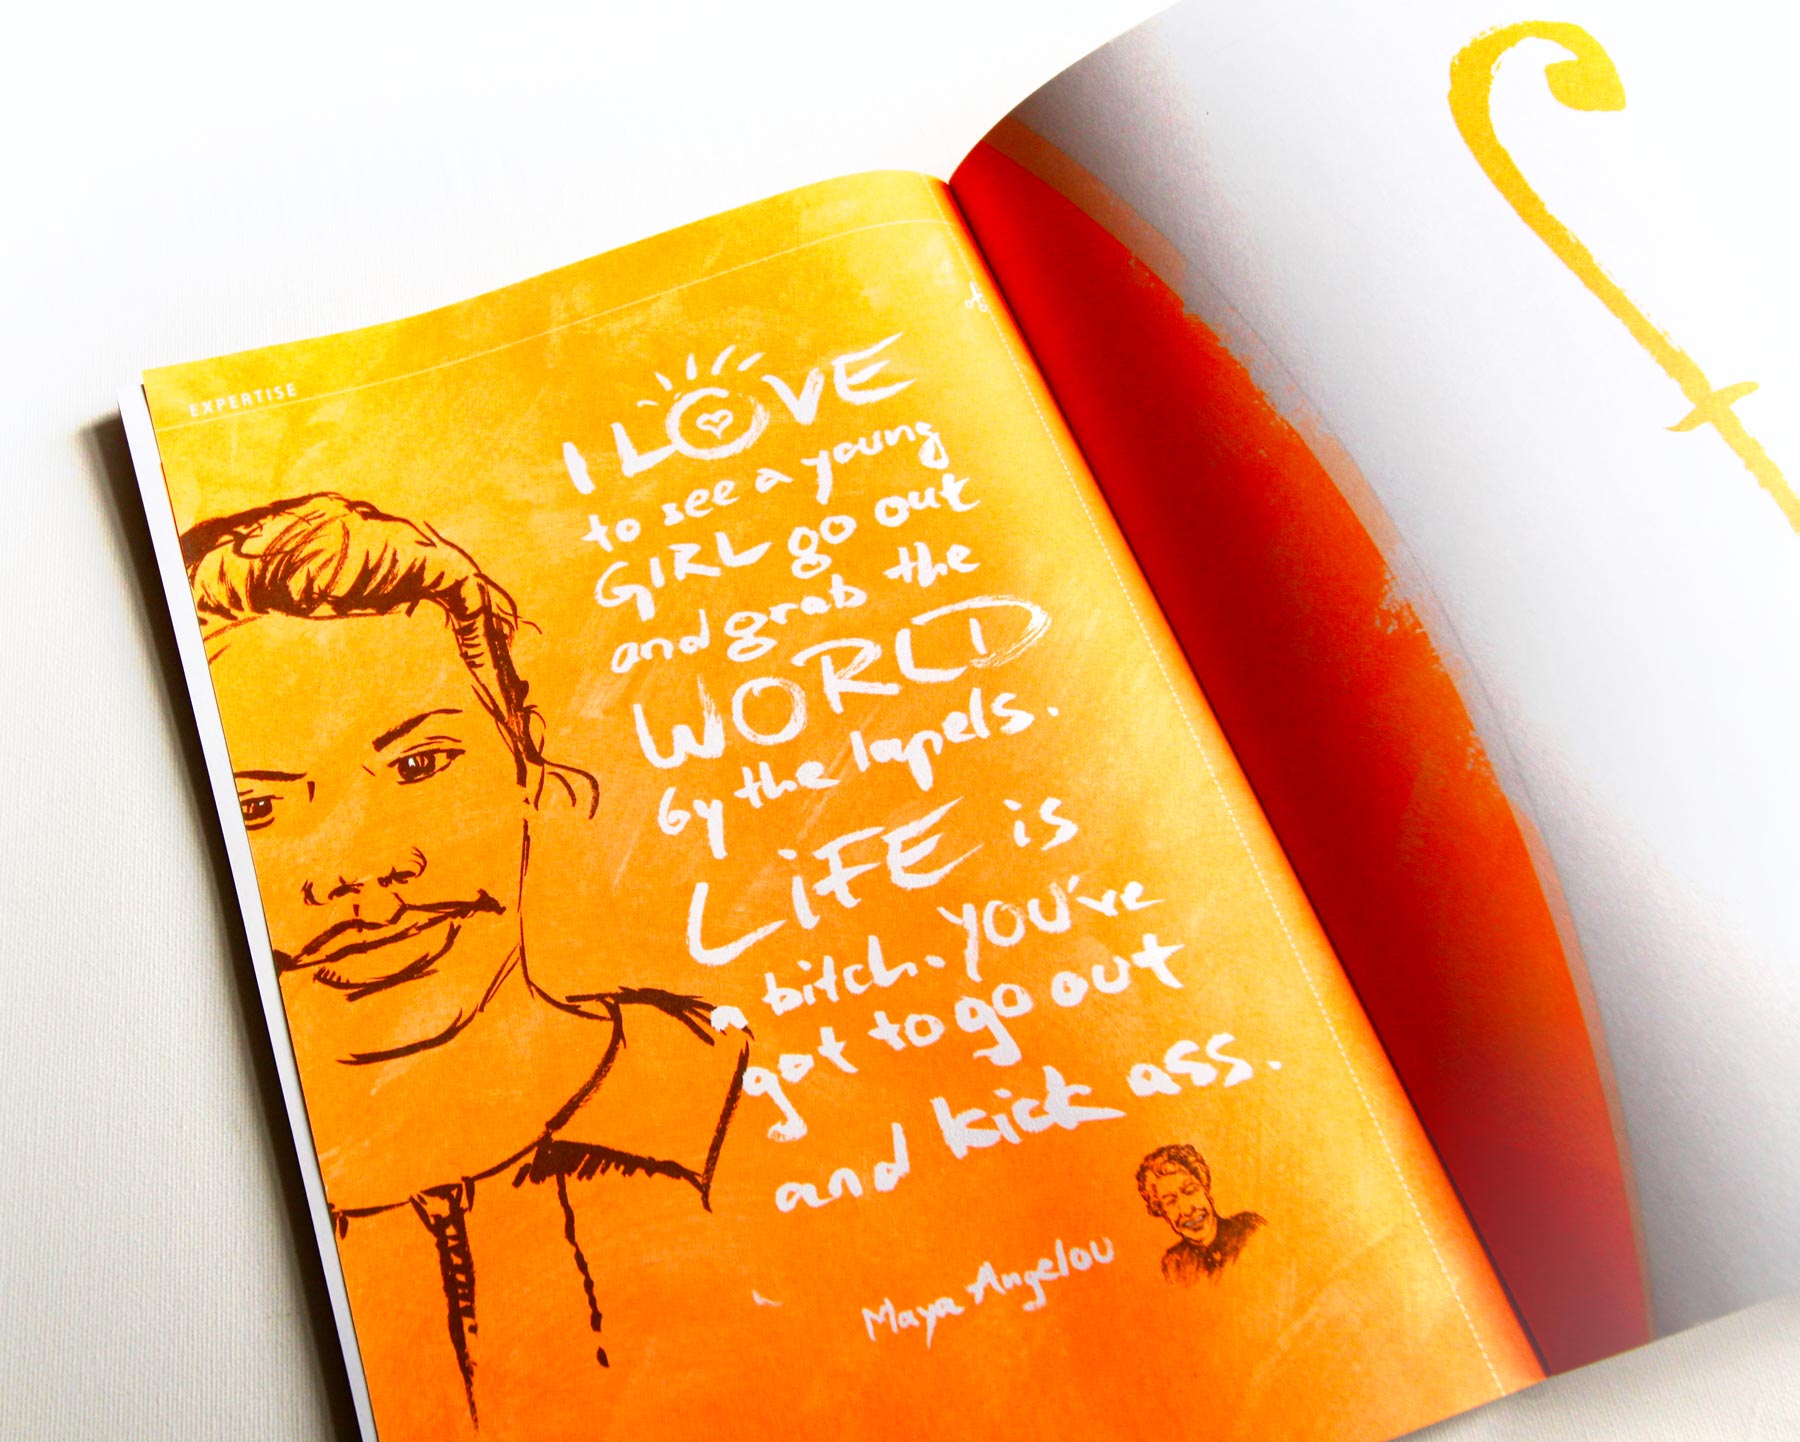 EXPERTISE
I LOVE
to see a young
GIRL go out
and grab the
WORLD
by the lapels.
LiFE is
a bitch. YOU've
got to go out
and kick ass.
Maya Angelou
f